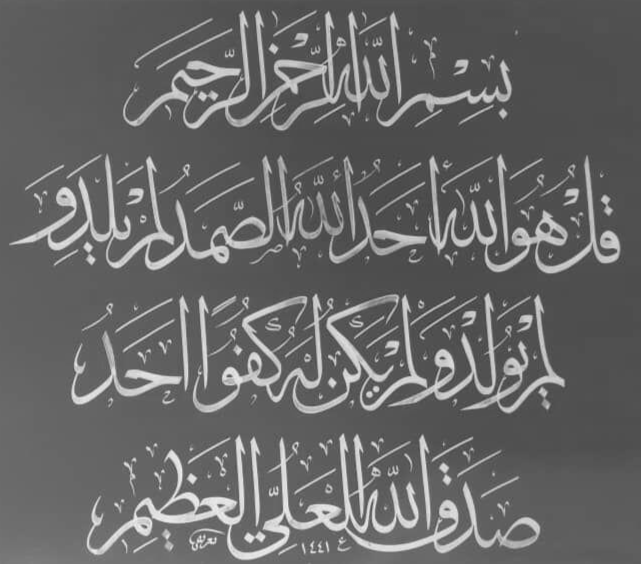 بِسْمِ اللهِ الرَّحْمٰنِ الرَّحِيمِ
قُلْ هُوَ اللهُ أَحَدٌ اللهُ الصَّمَدُ لَمْ يَلِدْ وَ
لَمْ يُولَدْ وَلَمْ يَكُنْ لَهُ كُفُوًا أَحَدٌ
صَدَقَ اللهُ الْعَلِيُّ الْعَظِيمُ
١٤٤١